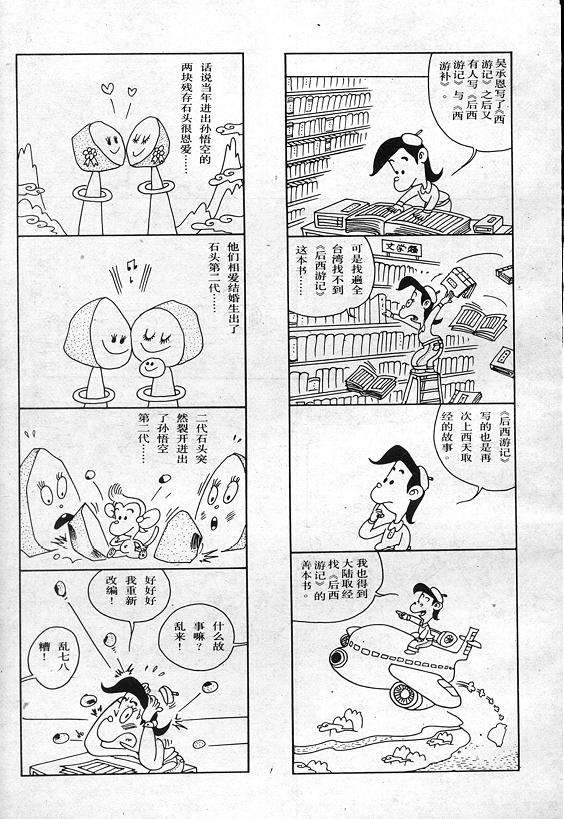 吴承恩写了《西
游记》之后又
有人写《后西
游记》与《西
游补》。
可是找遍全
台湾找不到
《后西游记》
这本书……
《后西游记》
写的也是再
次上西天取
经的故事。
我也得到
大陆取经
找《后西
游记》的
善本书。
话说当年迸出孙悟空的
两块残存石头很恩爱……
他们相爱结婚生出了
石头第二代……
二代石头突
然裂开迸出
了孙悟空
第二代……
什么故
事嘛？
乱来！
好好好
我重新
改编！
乱七八
糟！